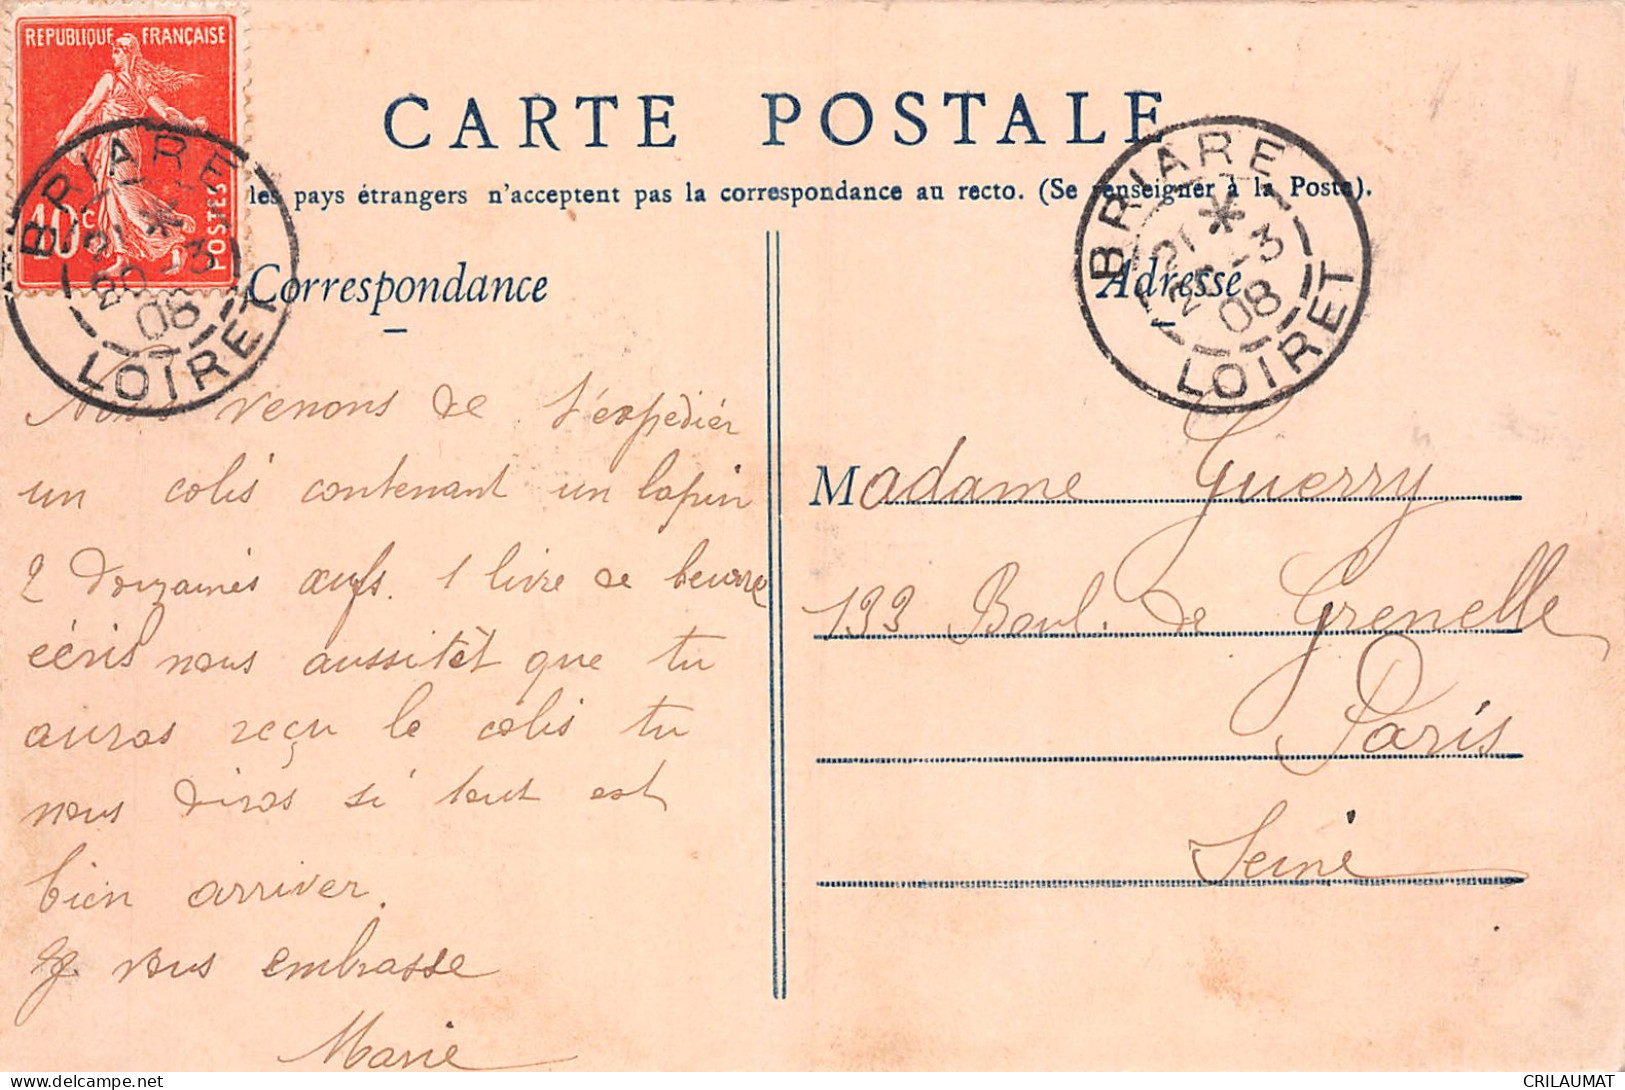 REPUBLIQUE FRANÇAISE
10c
POSTES
BRIARE
21 *
20 - 3
08
LOIRET
CARTE POSTALE
les pays étrangers n'acceptent pas la correspondance au recto. (Se renseigner à la Poste).
BRIARE
21 *
20 - 3
08
LOIRET
Correspondance
Nous venons de t'expédiér
un colis contenant un lapin
2 douzaines œufs. 1 livre de beurre
écris nous aussitôt que tu
auras reçu le colis tu
nous diras si tout est
bien arriver.
Je vous embrasse
Marie
Adresse
Madame Guerry
133 Boul. de Grenelle
Paris
Seine
CRILAUMAT